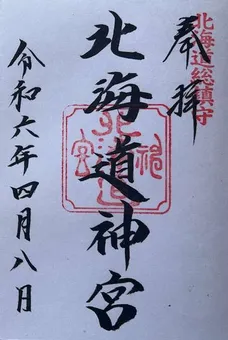 北海道総鎮守
奉拝
北海道神宮
令和六年四月八日